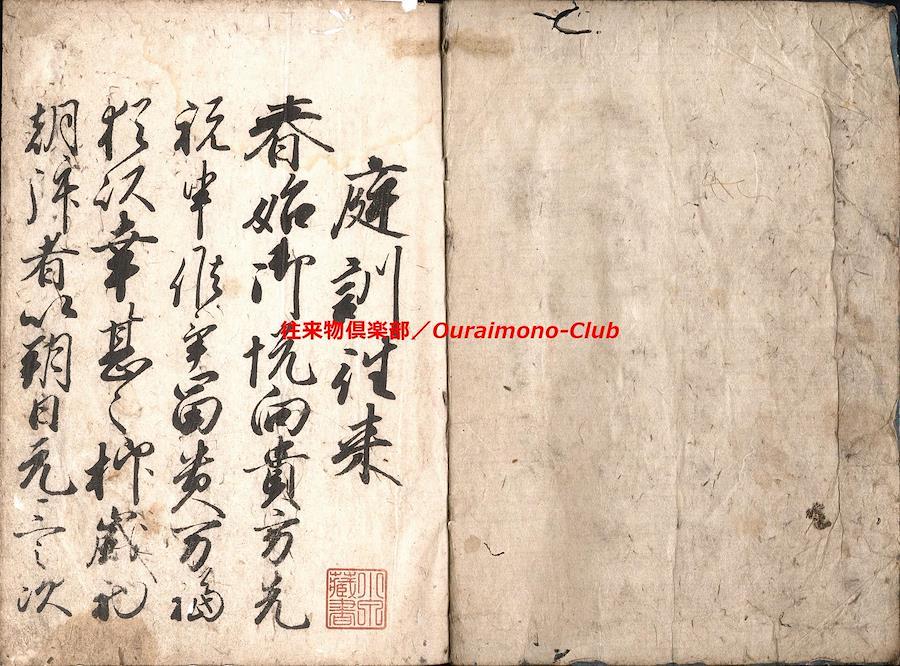 庭訓往来
春始御悦向貴方先
祝申候畢富貴万福
猶以幸甚々抑歳初
朝拝者以朔日元三之次
蔵書
往来物倶楽部／Ouraimono-Club